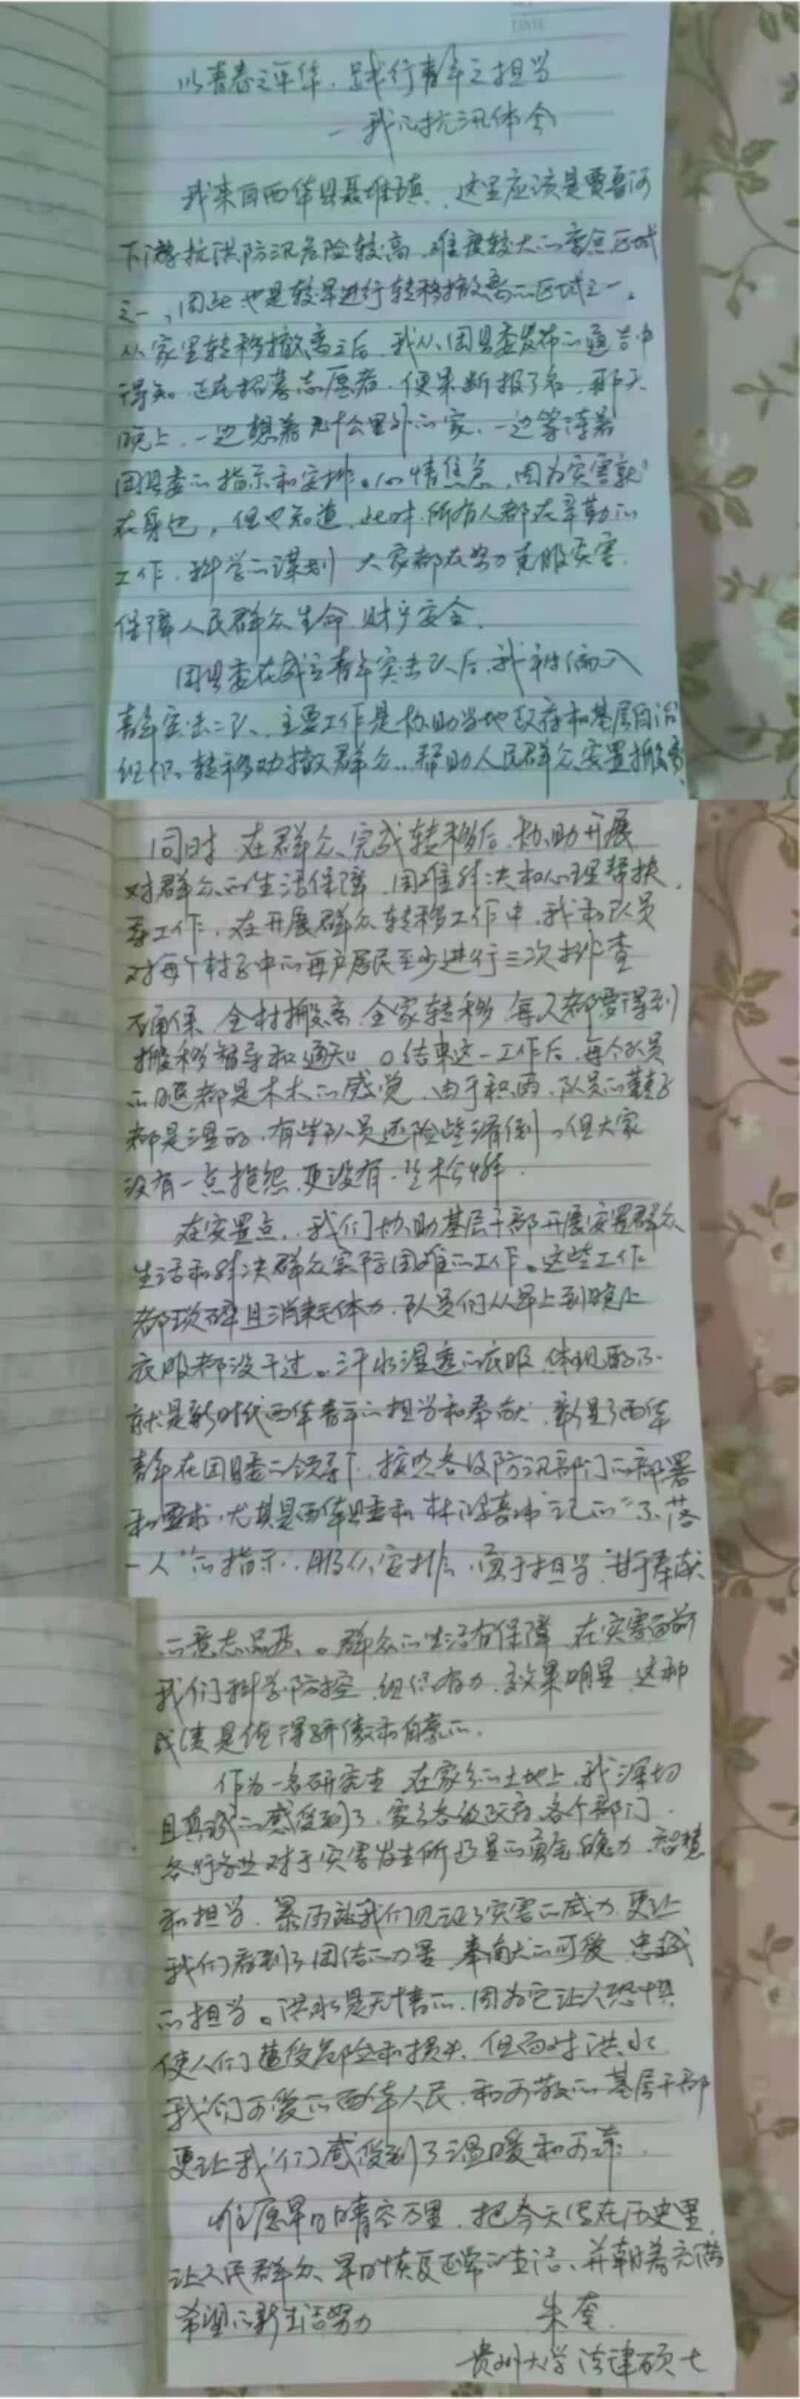 以青春之年华，践行青年之担当
—我的抗汛体会
我来自西华县聂堆镇，这里应该是贾鲁河
下游抗洪防汛危险较高，难度较大的重点区域
之一，因此也是较早进行转移撤离的区域之一。
从家里转移撤离之后，我从团县委发布的通告中
得知，正在招募志愿者，便果断报了名，那天
晚上，一边想着几十公里外的家，一边等待着
团县委的指示和安排。心情焦急，因为灾害就
在身边，但也知道，此时，所有人都在辛勤的
工作，科学的谋划，大家都在努力克服灾害，
保障人民群众生命、财产安全。
团县委在成立青年突击队后，我被编入
青年突击二队，主要工作是协助当地政府和基层自治
组织，转移劝撤群众，帮助人民群众安置搬离，
同时，在群众完成转移后，协助开展
对群众的生活保障，困难解决和心理帮扶
等工作，在开展群众转移工作中，我和队员
对每个村子中的每户居民至少进行三次排查
确保全村搬离，全家转移，每人都要得到
搬移督导和通知。结束这一工作后，每个队员
的腿都是木木的感觉，由于积雨，队员的鞋子
都是湿的，有些队员还险些滑倒，但大家
没有一点抱怨，更没有一丝松懈。
在安置点，我们协助基层干部开展安置群众
生活和解决群众实际困难的工作。这些工作
都琐碎且消耗体力，队员们从早上到晚上
衣服都没干过。汗水湿透的衣服，体现的
就是新时代西华青年的担当和奉献，彰显了西华
青年在团县委的领导下，按照各级防汛部门的部署
和要求，尤其是西华县委和林鸿嘉书记的“不落
一人”的指示，服从安排，勇于担当，甘于奉献
的意志品质。群众的生活有保障，在灾害面前
我们科学防控，组织有力，效果明显，这种
成绩是值得骄傲和自豪的。
作为一名研究生，在家乡的土地上，我深切
且真诚的感受到了，家乡各级政府，各个部门，
各行各业对于灾害发生所彰显的勇气魄力，智慧
和担当，暴雨让我们见证了灾害的威力，更让
我们看到了团结的力量，奉献的可爱，忠诚
的担当。洪水是无情的，因为它让人恐惧
使人们遭受危险和损失，但面对洪水
我们可爱的西华人民，和可敬的基层干部
更让我们感受到了温暖和可靠。
唯愿早日晴空万里，把今天写在历史里，
让人民群众早日恢复正常的生活，并朝着充满
希望的新生活努力
朱奎
贵州大学法律硕士